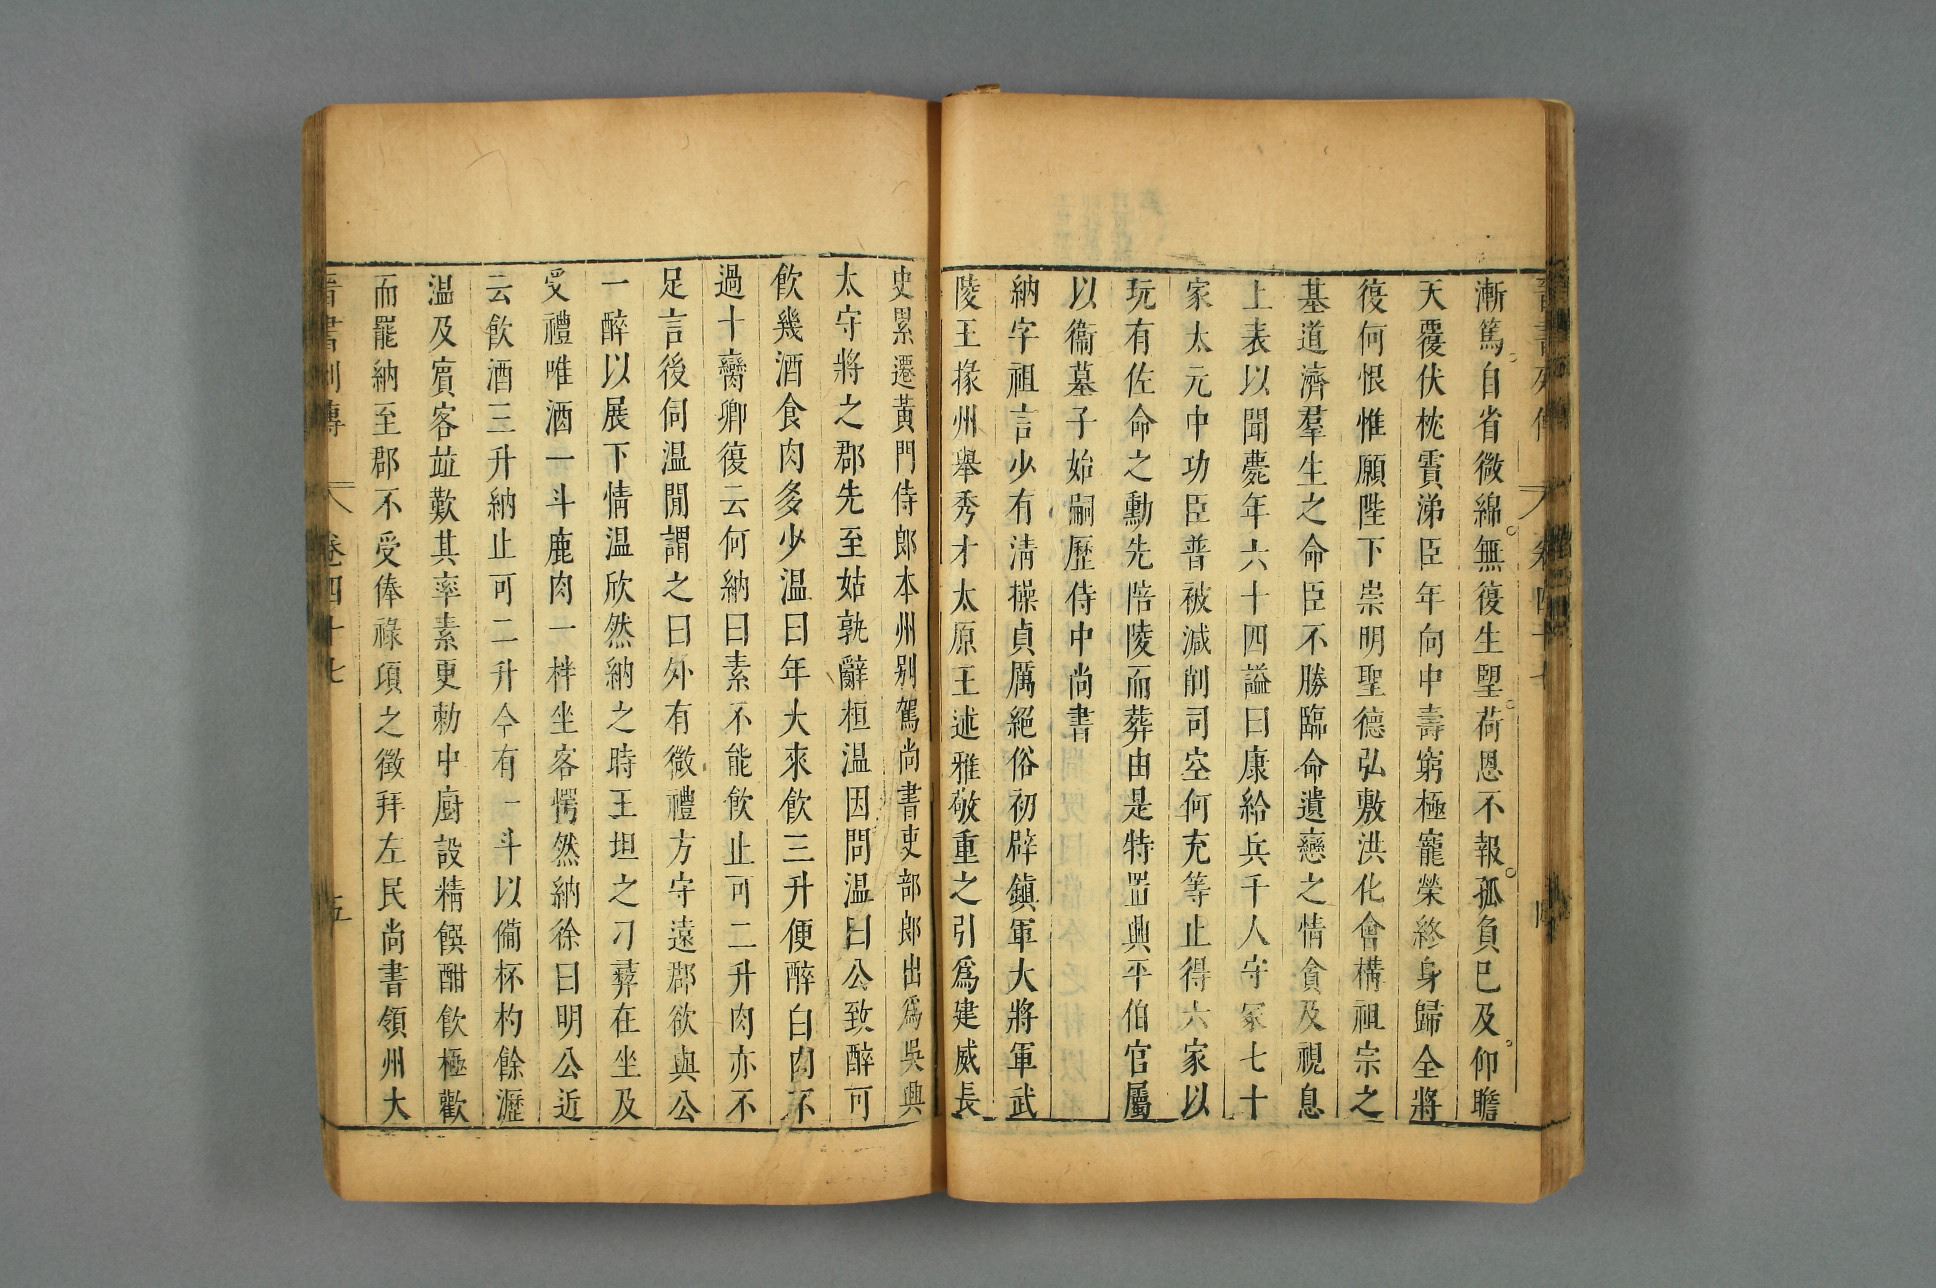 漸篤自省微綿無復生望荷恩不報孤負已及仰瞻
天覆伏枕霣涕臣年向中壽窮極寵榮終身歸全將
復何恨惟願陛下崇明聖德弘敷洪化曾構祖宗之
基道濟羣生之命臣不勝臨命遺戀之情貪及視息
上表以聞薨年六十四謚曰康給兵千人守冢七十
家太元中功臣普被減削司空何充等止得六家以
玩有佐命之勳先陪陵而葬由是特置興平伯官屬
以衞墓子始嗣歷侍中尚書
納字祖言少有清操貞厲絕俗初辟鎮軍大將軍武
陵王掾州舉秀才太原王述雅敬重之引爲建威長
史累遷黃門侍郎本州別駕尚書吏部郎出爲吳興
太守將之郡先至姑孰辭桓温因問温曰公致醉可
飲幾酒食肉多少温曰年大來飲三升便醉白肉不
過十臠卿復云何納曰素不能飲止可二升肉亦不
足言後伺温閒謂之曰外有微禮方守遠郡欲與公
一醉以展下情温欣然納之時王坦之刁彝在坐及
受禮唯酒一斗鹿肉一柈坐客愕然納徐曰明公近
云飲酒三升納止可二升今有一斗以備杯杓餘瀝
温及賓客竝歎其率素更勅中廚設精饌酣飲極歡
而罷納至郡不受俸祿頃之徵拜左民尚書領州大
晉書列傳 卷四十七 五